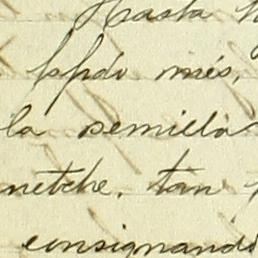 Hasta
més,
la semilla
netche. tan
consignando